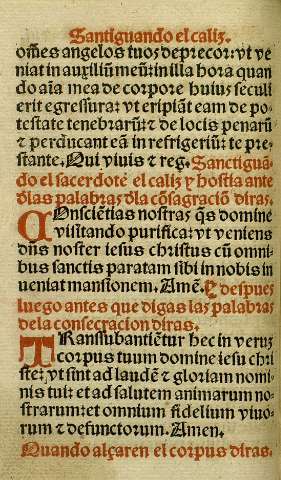 Santiguando el caliz.
om̃es angelos tuos deprecor: vt ve
niat in auxiliũ meũ: in illa hora quan
do aĩa mea de corpore huius seculi
erit egressura: vt eripiãt eam de po-
testate tenebrarũ: ⁊ de locis penarũ
⁊ perducant eã in refrigeriũ: te pre-
stante. Qui viuis ⁊ reg. Sanctiguã
do el sacerdote el caliz y hostia ante
ď las palabras ďla cõsagraciõ diras.
COnsciẽtias nostras q̃s domine
visitando purifica: vt veniens
dñs noster iesus christus cũ omni
bus sanctis paratam sibi in nobis in
ueniat mansionem. Amẽ. Y despues
luego antes que digas las palabras
de la consecracion diras.
TRanssubantiẽtur hec in verũ
corpus tuum domine iesu chri
ste: vt sint ad laudẽ ⁊ gloriam nomi
nis tui: et ad salutem animarum no
strarum: et omnium fidelium viuo
rum ⁊ defunctorum. Amen.
Quando alçaren el corpus diras.